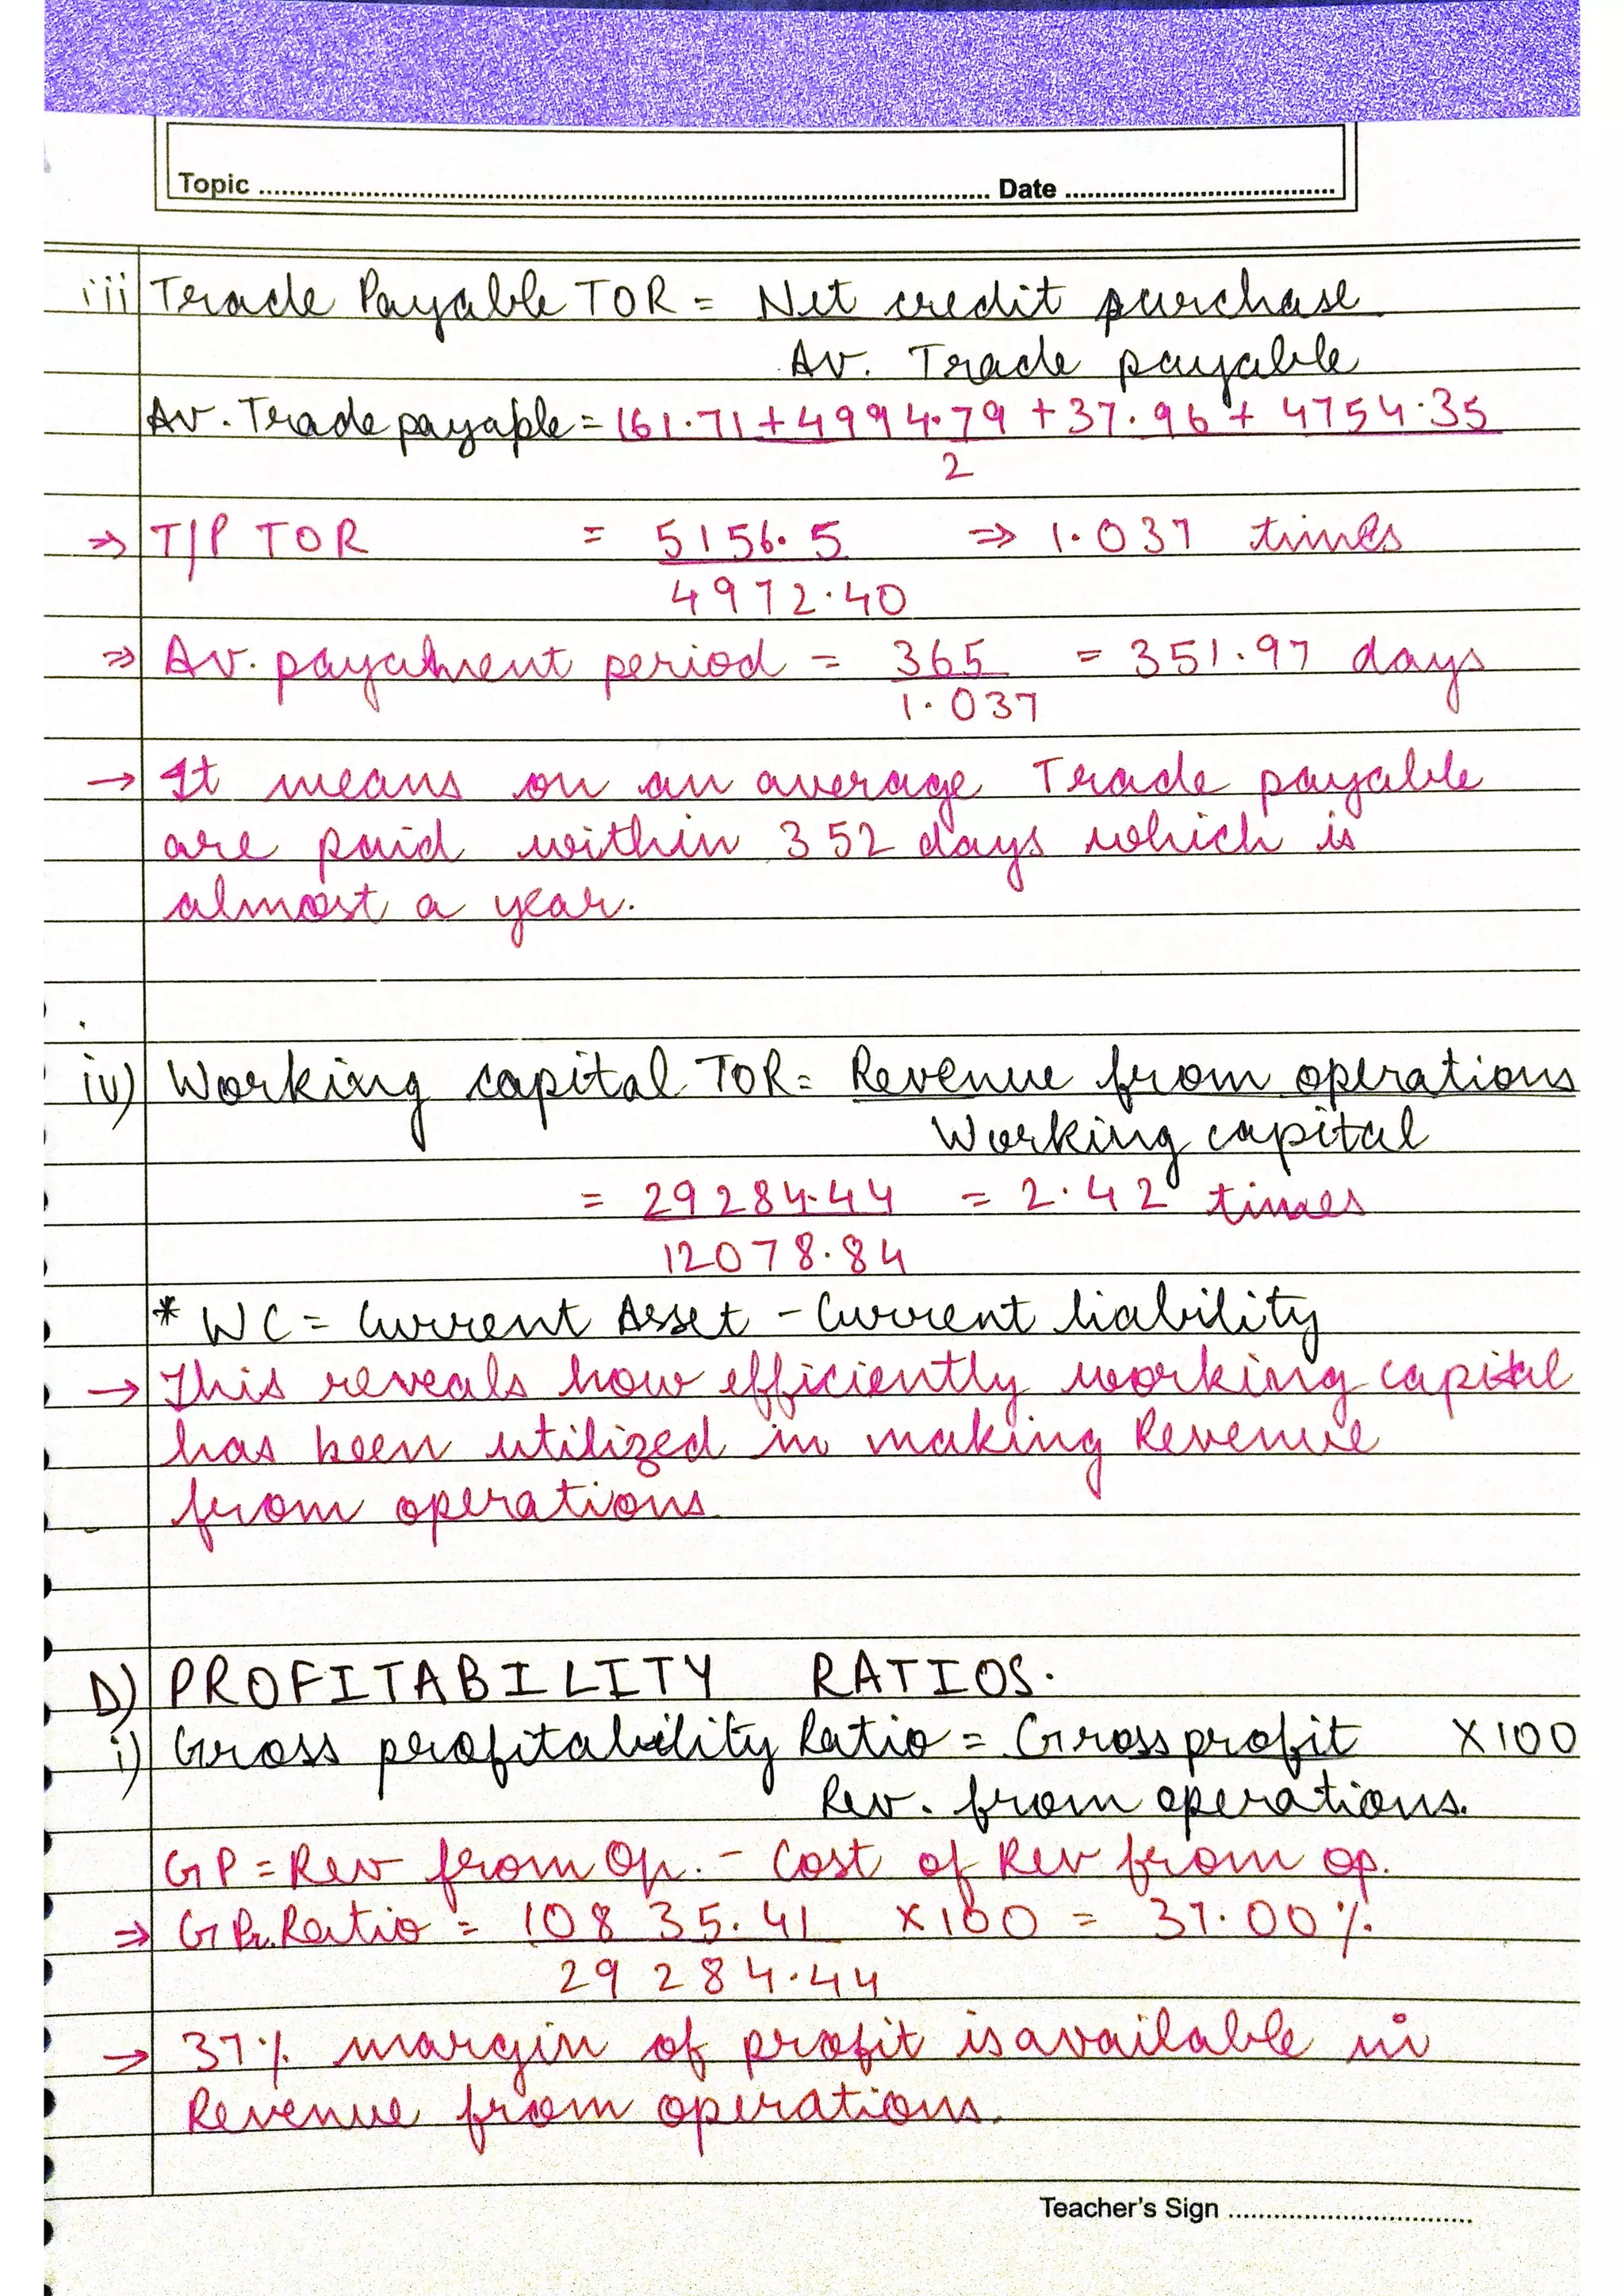 Topic ........ Date ........
iii Trade Payable TOR = Net credit purchase
Av. Trade payable
Av. Trade payable = 161.71 + 4994.79 + 37.96 + 4754.35
2
⇒ T/P TOR = 5156.5 ⇒ 1.037 times
4972.40
⇒ Av. payament period = 365 = 351.97 days
1.037
→ It means on an average Trade payable
are paid within 352 days which is
almost a year.
iv) Working capital TOR = Revenue from operations
Working capital
= 29284.44 = 2.42 times
12078.84
* WC = Current Asset - Current liability
→ This reveals how efficiently working capital
has been utilized in making Revenue
from operations.
D) PROFITABILITY RATIOS.
i) Gross profitability Ratio = Gross profit X100
Rev. from operations.
GP = Rev from Op. - Cost of Rev from op.
⇒ G Pr. Ratio = 10835.41 X100 = 37.00%
29284.44
→ 37% margin of profit is available in
Revenue from operations.
Teacher's Sign ........